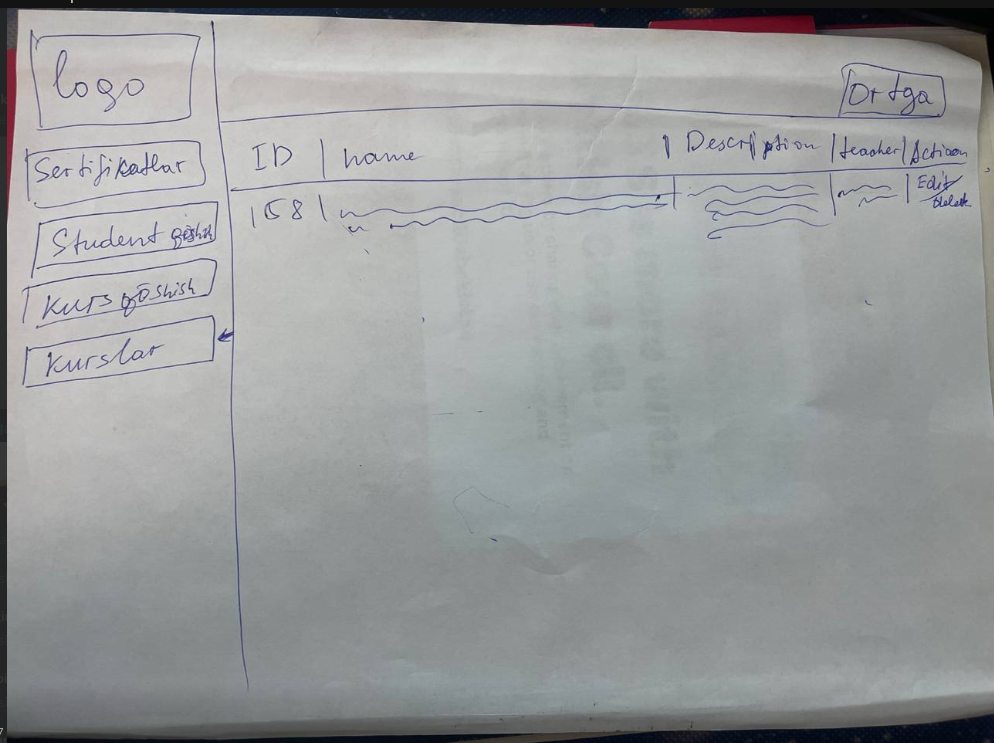 logo
Ortga
Sertifikatlar
Student qo'shish
Kurs qo'shish
Kurslar
ID | name | Description | teacher | Action
158 | Edit
Delete